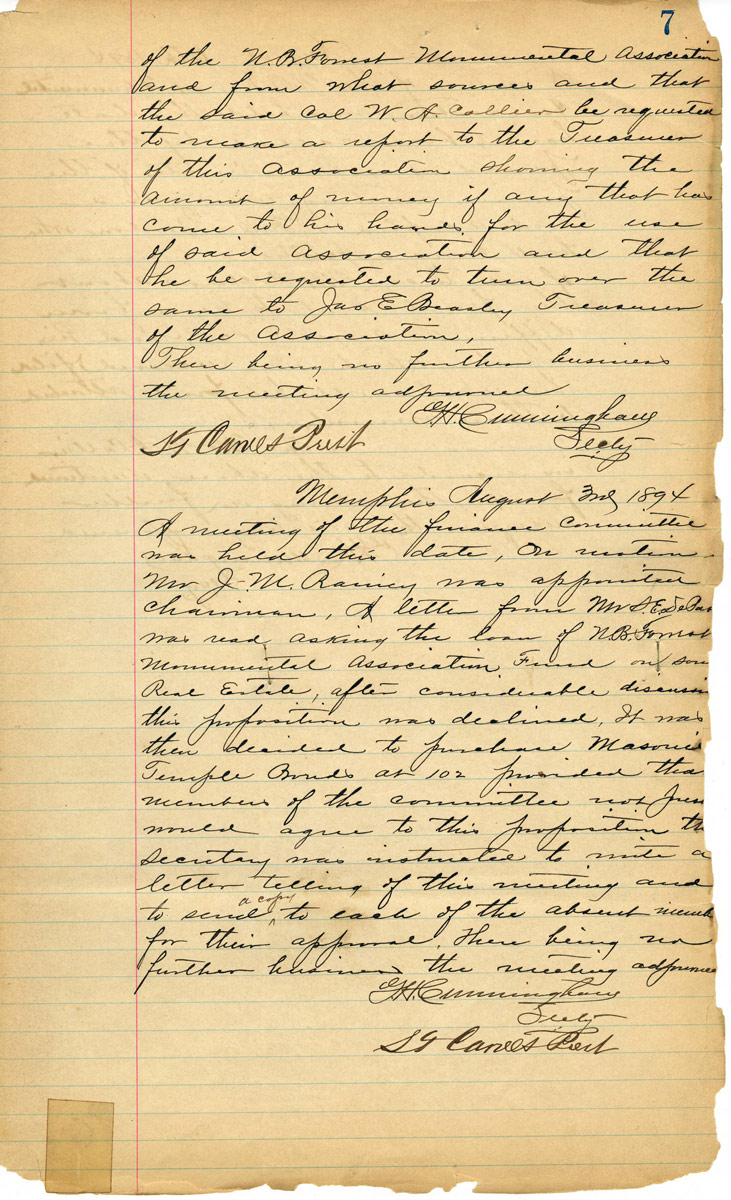 7
of the N.B. Forrest Monumental Association
and from what sources and that
the said Col W. A. Collier be requested
to make a report to the Treasurer
of this Association showing the
amount of money if any that has
come to his hands for the use
of said Association and that
he be requested to turn over the
same to Jas E Beasley Treasurer
of the Association,
There being no further business
the meeting adjourned
G.H. Cunningham
Secty
S T Carnes Prest
Memphis August 3rd 1894
A meeting of the finance committee
was held this date, On motion
Mr J. M. Rainey was appointed
chairman, A letter from Mr S. E.
was read asking the loan of N.B. Forrest
Monumental Association Fund on som
Real Estate, after considerable discussion
this proposition was declined, It was
then decided to purchase Masonic
Temple Bonds at 102 provided tha
members of the committee not pres
would agree to this proposition th
secretary was instructed to write a
letter telling of this meeting and
to send a copy to each of the absent memb
for their approval. There being no
further business the meeting adjourned
G.H. Cunningham
Secty
S T Carnes Prest